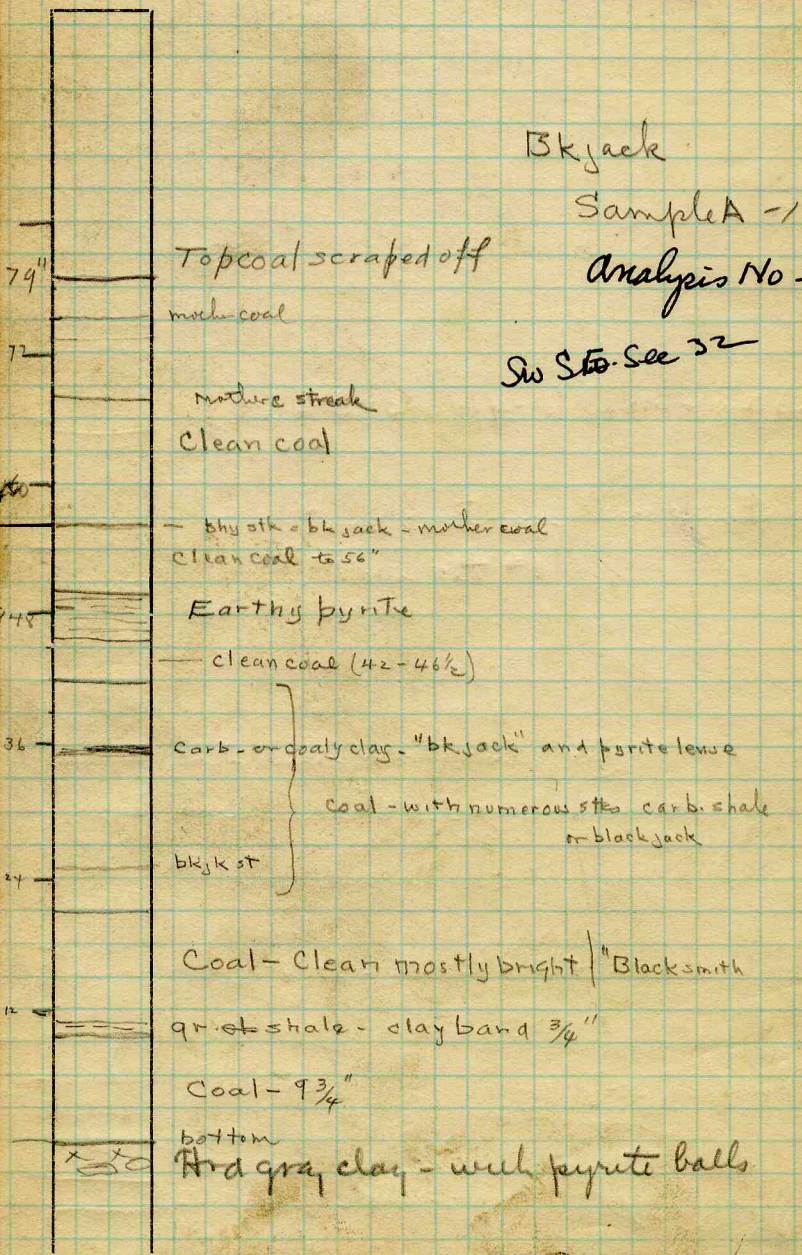 Bkjack
Sample A - 1
Analysis No -
79"
Topcoal scraped off
mother coal
72
SW Sec 32
mother c streak
Clean coal
60
bk jack - mother coal
Clean coal to 56"
48
Earthy pyrite
clean coal (42 - 46½)
36
Carb - or coaly clay - "bk jack" and pyrite lense
coal - with numerous stks carb. shale
or blackjack
bkjk st
24
Coal - Clean mostly bright "Blacksmith
12
gr. shale - clay band 3/4"
Coal - 9 3/4"
bottom
Hrd gray clay - with pyrite balls